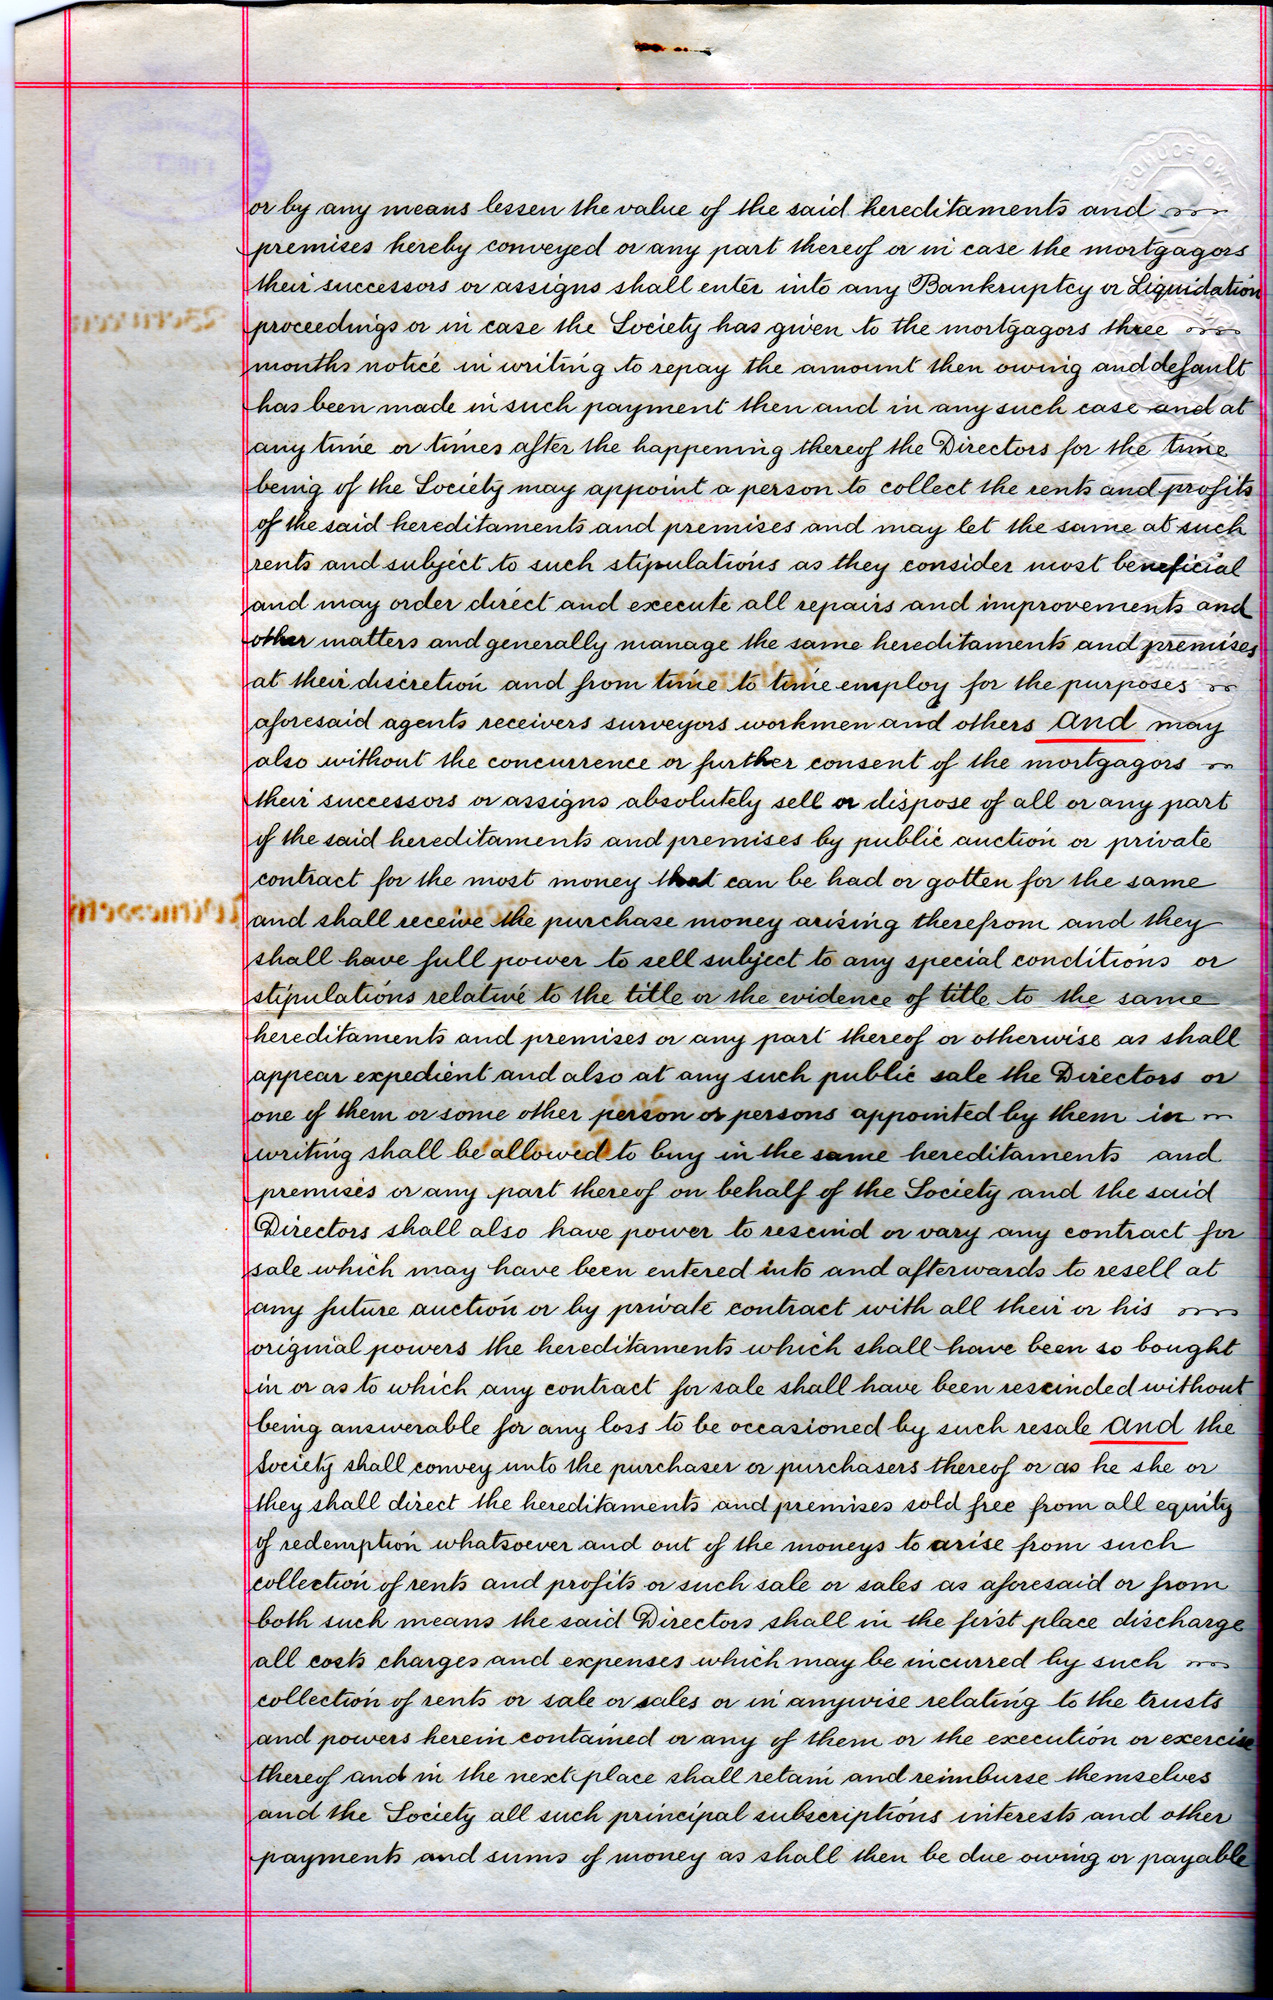 or by any means lessen the value of the said hereditaments and
premises hereby conveyed or any part thereof or in case the mortgagors
their successors or assigns shall enter into any Bankruptcy or Liquidation
proceedings or in case the Society has given to the mortgagors three
months notice in writing to repay the amount then owing and default
has been made in such payment then and in any such case and at
any time or times after the happening thereof the Directors for the time
being of the Society may appoint a person to collect the rents and profits
of the said hereditaments and premises and may let the same at such
rents and subject to such stipulations as they consider most beneficial
and may order direct and execute all repairs and improvements and
other matters and generally manage the same hereditaments and premises
at their discretion and from time to time employ for the purposes
aforesaid agents receivers surveyors workmen and others and may
also without the concurrence or further consent of the mortgagors
their successors or assigns absolutely sell or dispose of all or any part
of the said hereditaments and premises by public auction or private
contract for the most money that can be had or gotten for the same
and shall receive the purchase money arising therefrom and they
shall have full power to sell subject to any special conditions or
stipulations relative to the title or the evidence of title to the same
hereditaments and premises or any part thereof or otherwise as shall
appear expedient and also at any such public sale the Directors or
one of them or some other person or persons appointed by them in
writing shall be allowed to buy in the same hereditaments and
premises or any part thereof on behalf of the Society and the said
Directors shall also have power to rescind or vary any contract for
sale which may have been entered into and afterwards to resell at
any future auction or by private contract with all their or his
original powers the hereditaments which shall have been so bought
in or as to which any contract for sale shall have been rescinded without
being answerable for any loss to be occasioned by such resale and the
Society shall convey unto the purchaser or purchasers thereof or as he she or
they shall direct the hereditaments and premises sold free from all equity
of redemption whatsoever and out of the moneys to arise from such
collection of rents and profits or such sale or sales as aforesaid or from
both such means the said Directors shall in the first place discharge
all costs charges and expenses which may be incurred by such
collection of rents or sale or sales or in anywise relating to the trusts
and powers herein contained or any of them or the execution or exercise
thereof and in the next place shall retain and reimburse themselves
and the Society all such principal subscriptions interests and other
payments and sums of money as shall then be due owing or payable